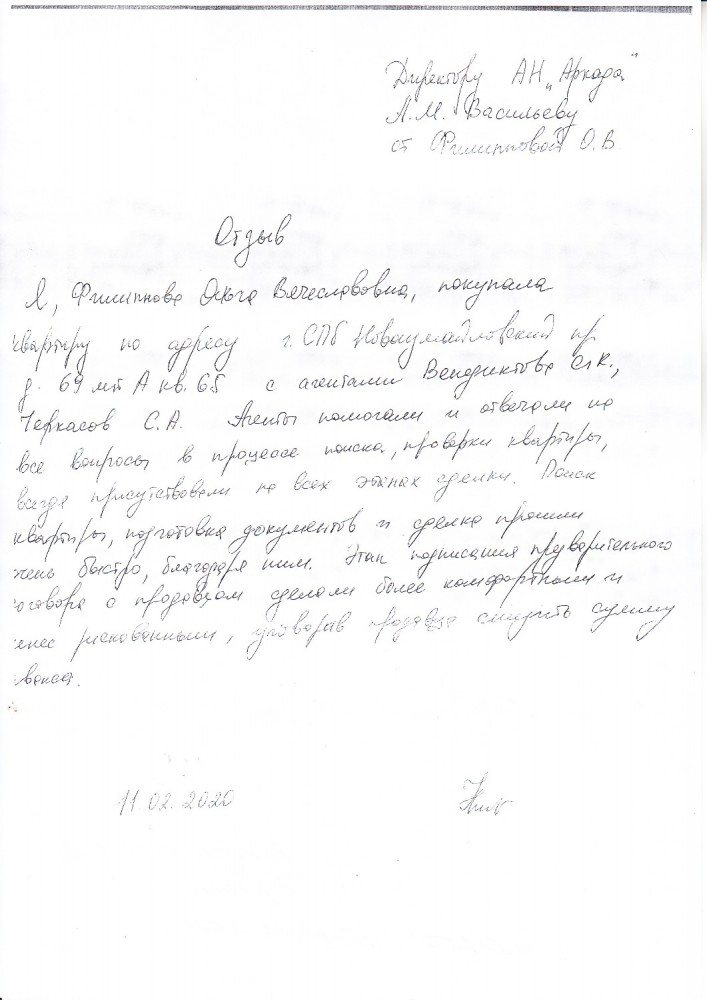 Директору АН „Аркада"
Л.М. Васильеву
от Филипповой О.В
Отзыв
Я, Филиппова Ольга Вячеславовна, покупала
квартиру по адресу г. СПб Новоизмайловский пр
д. 69 лит А кв. 65 с агентами Венедиктова
Черкасов С.А. Агенты помогали и отвечали на
все вопросы в процессе поиска, проверки квартиры,
всегда присутствовали на всех этапах сделки. Поиск
квартиры, подготовка документов и сделка прошли
чень быстро, благодаря ним. Этап подписания предварительного
оговора с продавцом сделали более комфортным и
енее рискованными, уговорив продавца снизить сумму
аванса.
11.02.2020